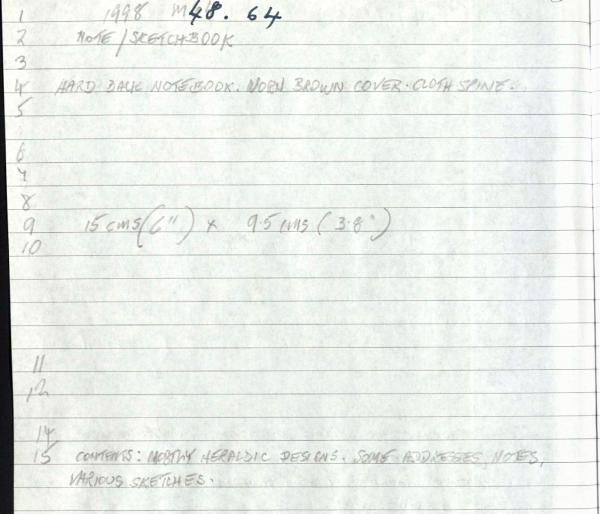 1 1998 48. 64
2 NOTE/SKETCHBOOK
3
4 HARD BACK NOTEBOOK. WORN BROWN COVER. CLOTH SPINE.
5
6
7
8
9 15 cms (6") x 9.5 cms (3.8")
10
11
12
14
15 CONTENTS: MOSTLY HERALDIC DESIGNS. SOME ADDRESSES, NOTES,
VARIOUS SKETCHES.